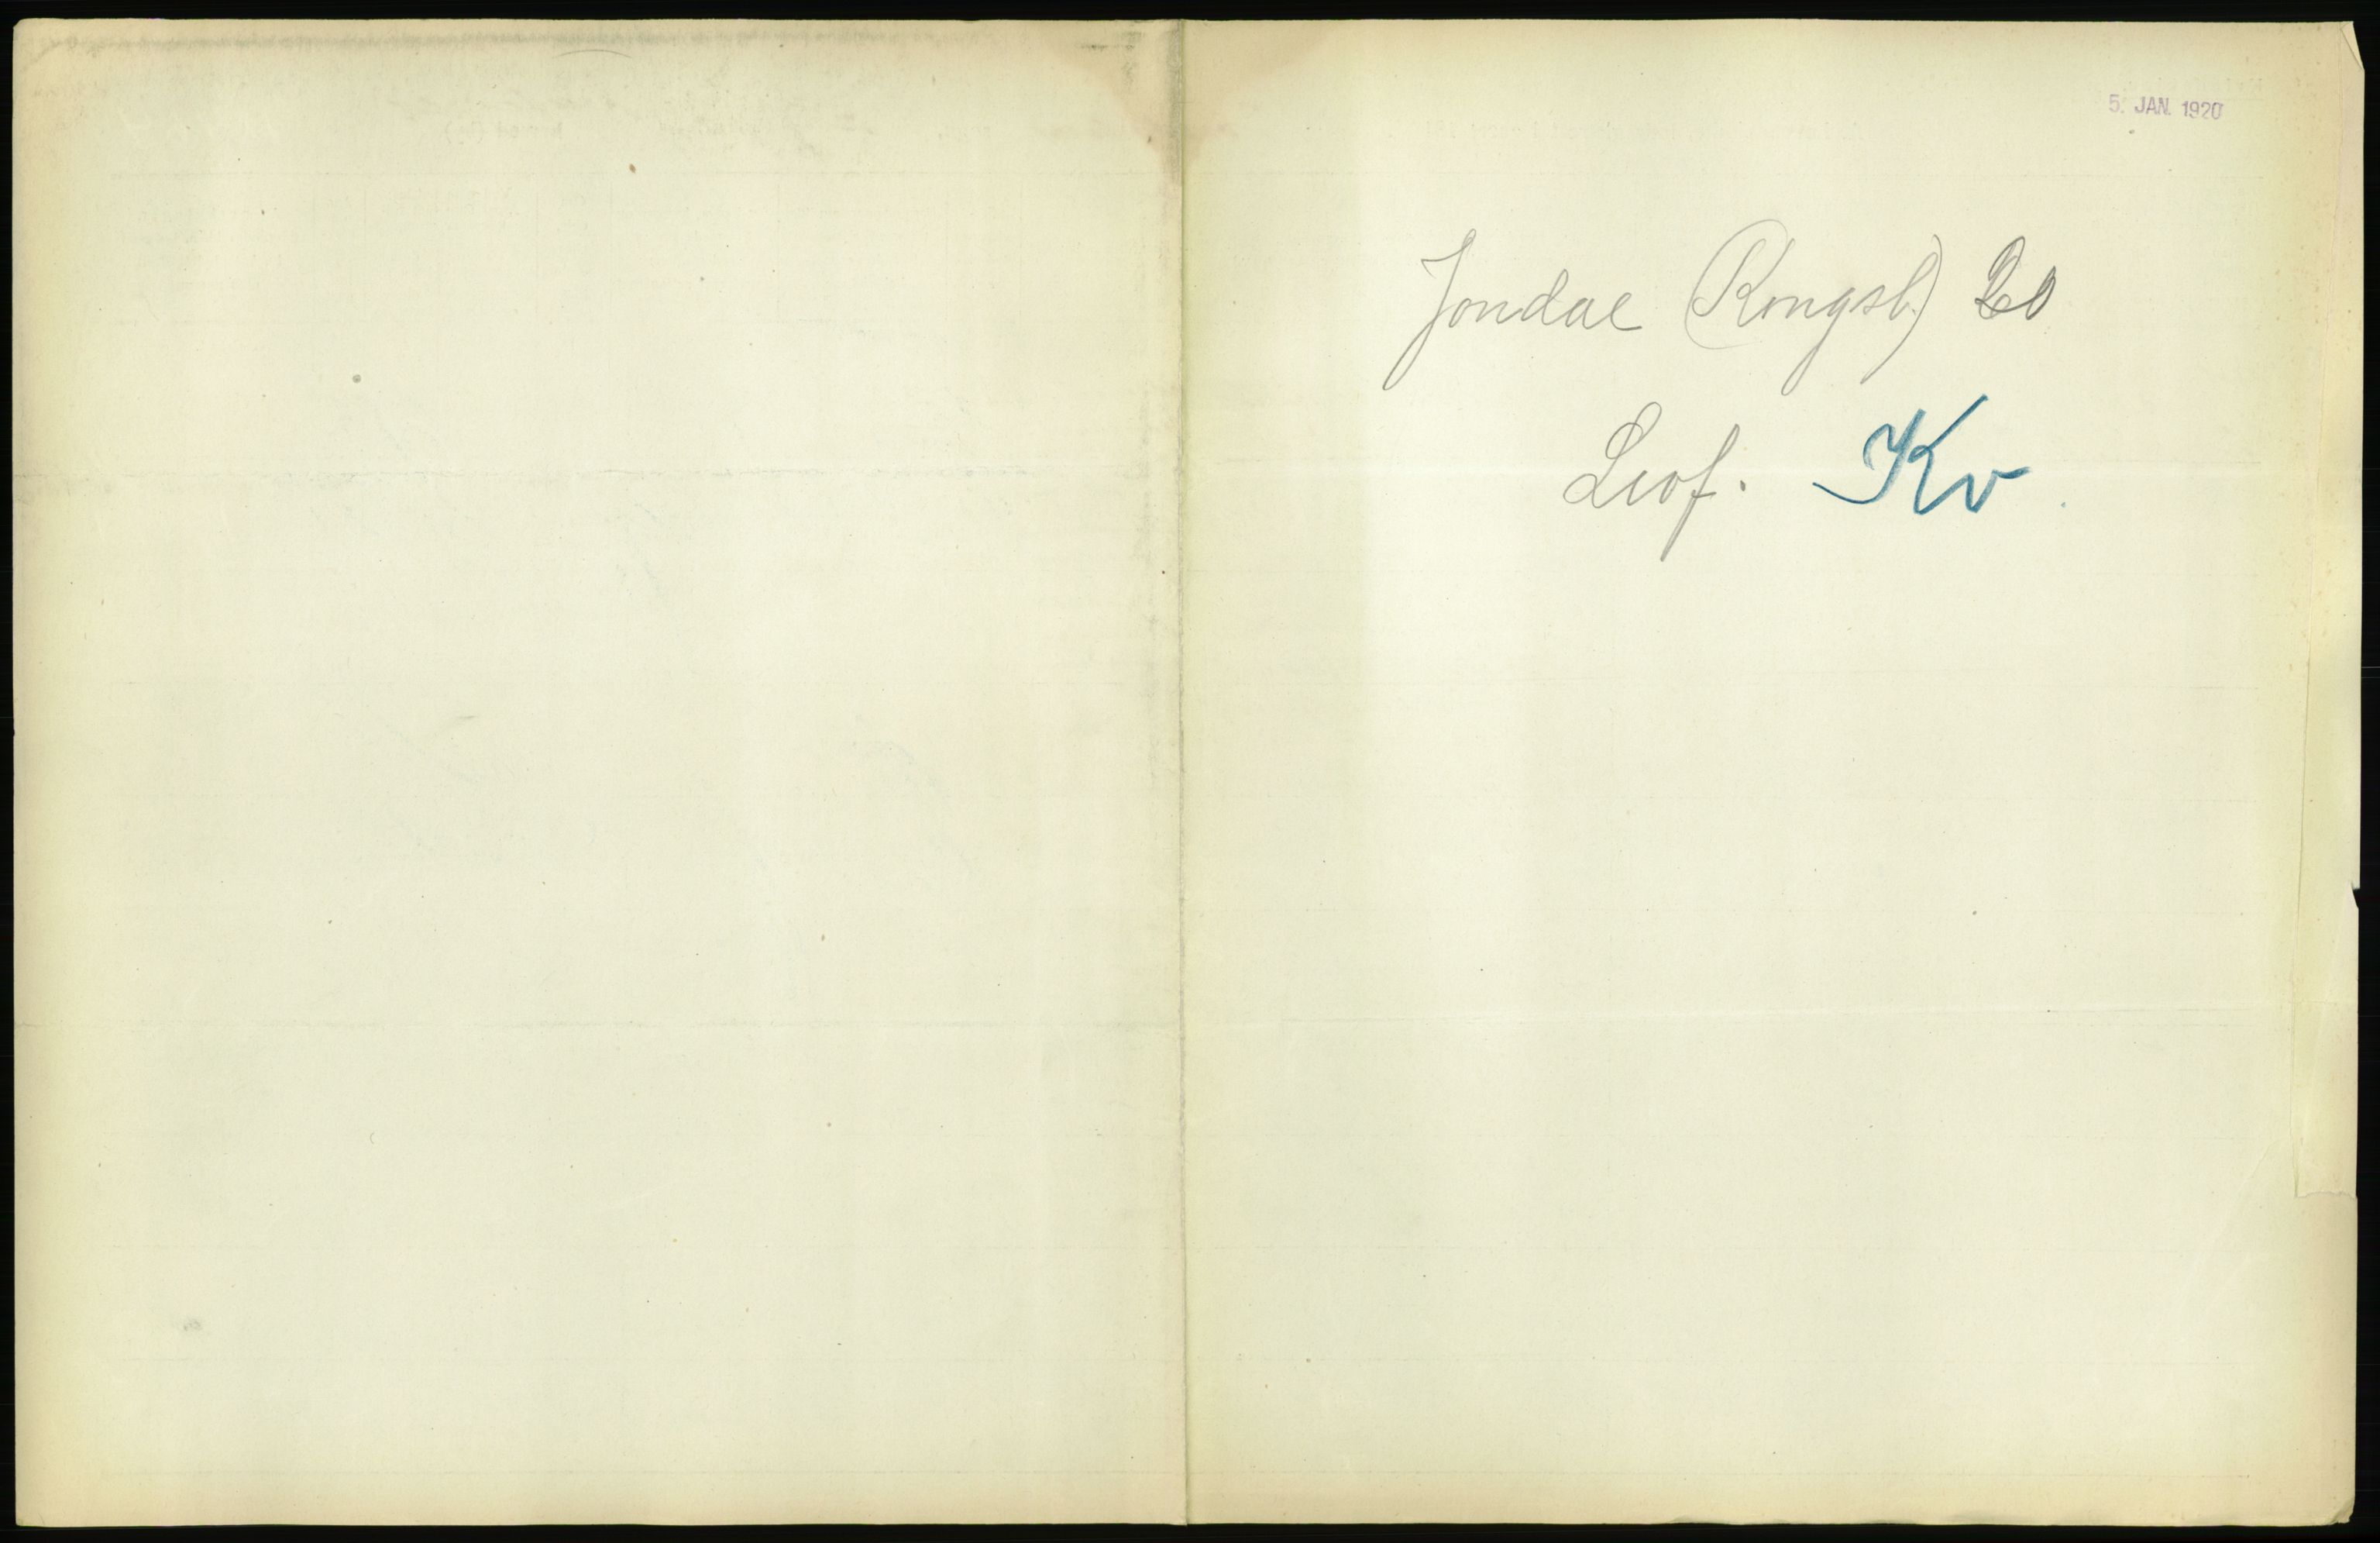 5. JAN. 1920
Jondal (Kongsb.)
Levf. Kv.